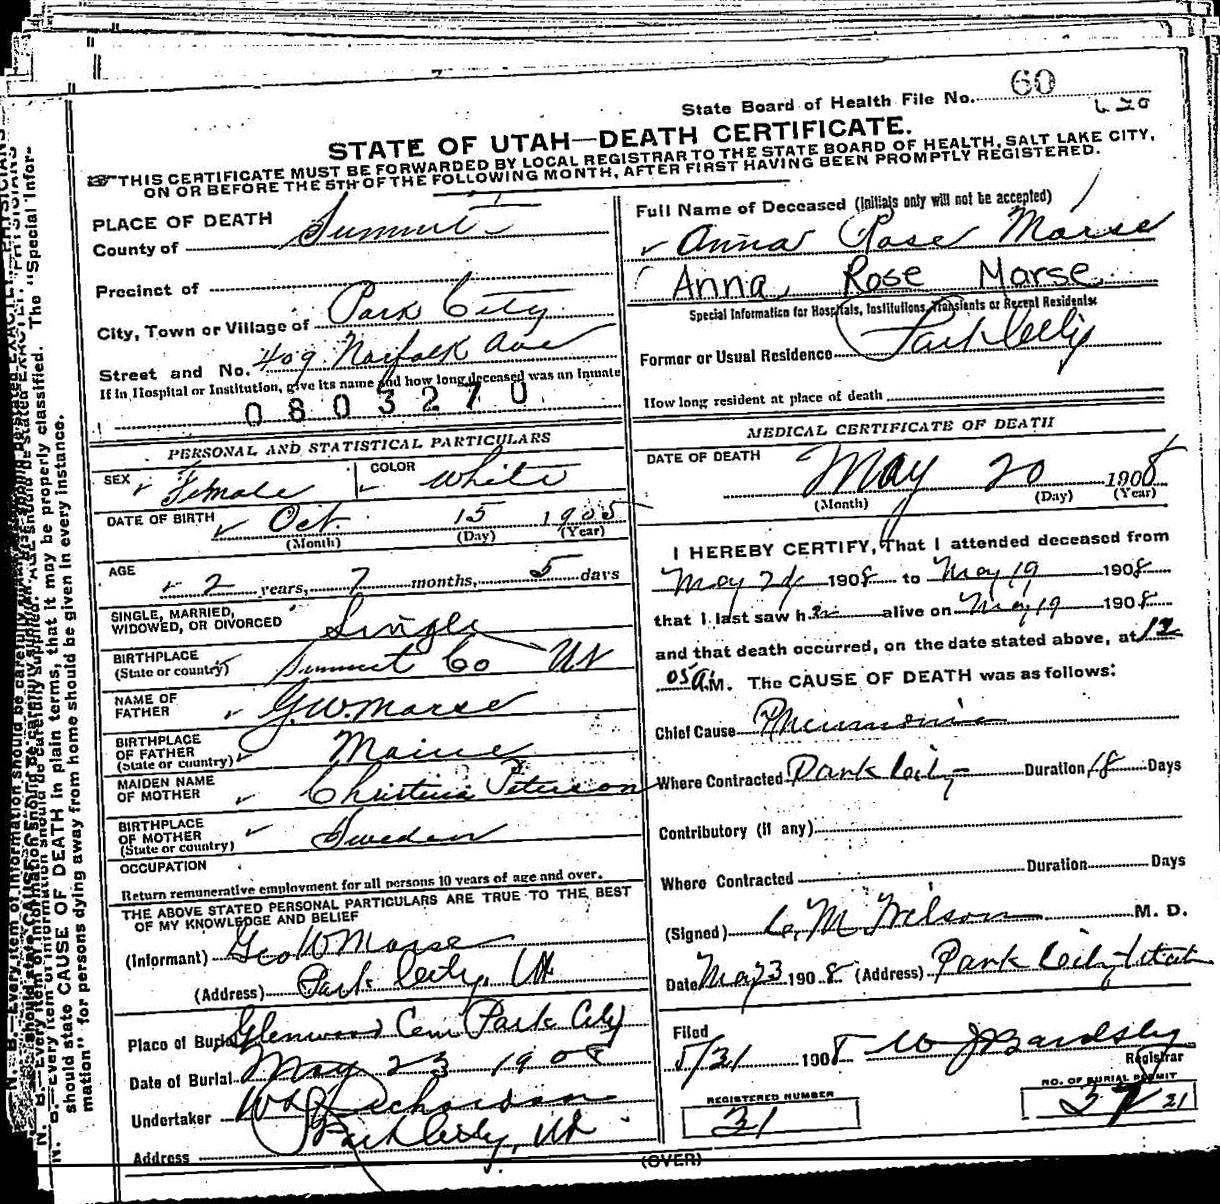 60
State Board of Health File No.
STATE OF UTAH—DEATH CERTIFICATE.
THIS CERTIFICATE MUST BE FORWARDED BY LOCAL REGISTRAR TO THE STATE BOARD OF HEALTH, SALT LAKE CITY,
ON OR BEFORE THE 5TH OF THE FOLLOWING MONTH, AFTER FIRST HAVING BEEN PROMPTLY REGISTERED.
PLACE OF DEATH
County of Summit
Precinct of
City, Town or Village of Park City
Street and No. 409 Norfolk Ave
If in Hospital or Institution, give its name and how long deceased was an inmate
0803270
Full Name of Deceased (Initials only will not be accepted)
Anna Rose Marse
Anna Rose Marse
Special Information for Hospitals, Institutions, Transients or Recent Residents:
Former or Usual Residence Park City
How long resident at place of death
PERSONAL AND STATISTICAL PARTICULARS
SEX Female COLOR White
DATE OF BIRTH Oct. 15 1905
(Month) (Day) (Year)
AGE
2 years, 7 months, 5 days
SINGLE, MARRIED,
WIDOWED, OR DIVORCED Single
BIRTHPLACE
(State or country) Summit Co Ut
NAME OF
FATHER G.W. Marse
BIRTHPLACE
OF FATHER
(State or country) Maine
MAIDEN NAME
OF MOTHER Christina Peterson
BIRTHPLACE
OF MOTHER
(State or country) Sweden
OCCUPATION
Return remunerative employment for all persons 10 years of age and over.
THE ABOVE STATED PERSONAL PARTICULARS ARE TRUE TO THE BEST
OF MY KNOWLEDGE AND BELIEF
(Informant) Geo W Marse
(Address) Park City, Ut
Place of Burial Glenwood Cem Park City
Date of Burial May 23 1908
Undertaker Richardson
Address Park City, Ut
MEDICAL CERTIFICATE OF DEATH
DATE OF DEATH May 20 1908
(Month) (Day) (Year)
I HEREBY CERTIFY, That I attended deceased from
May 2d 1908 to May 19 1908
that I last saw her alive on May 19 1908
and that death occurred, on the date stated above, at 12
05 A.M. The CAUSE OF DEATH was as follows:
Chief Cause Pneumonia
Where Contracted Park City Duration 18 Days
Contributory (if any)
Where Contracted Duration Days
(Signed) C. M. Wilson M. D.
Date May 23 1908 (Address) Park City Utah
Filed
5/31 1908 W J Bardsley
Registrar
REGISTERED NUMBER
31
NO. OF BURIAL PERMIT
37 21
(OVER)
N. B.—Every item of information should be carefully supplied. AGE should be stated EXACTLY. PHYSICIANS
should state CAUSE OF DEATH in plain terms, that it may be properly classified. The "Special Infor-
mation" for persons dying away from home should be given in every instance.